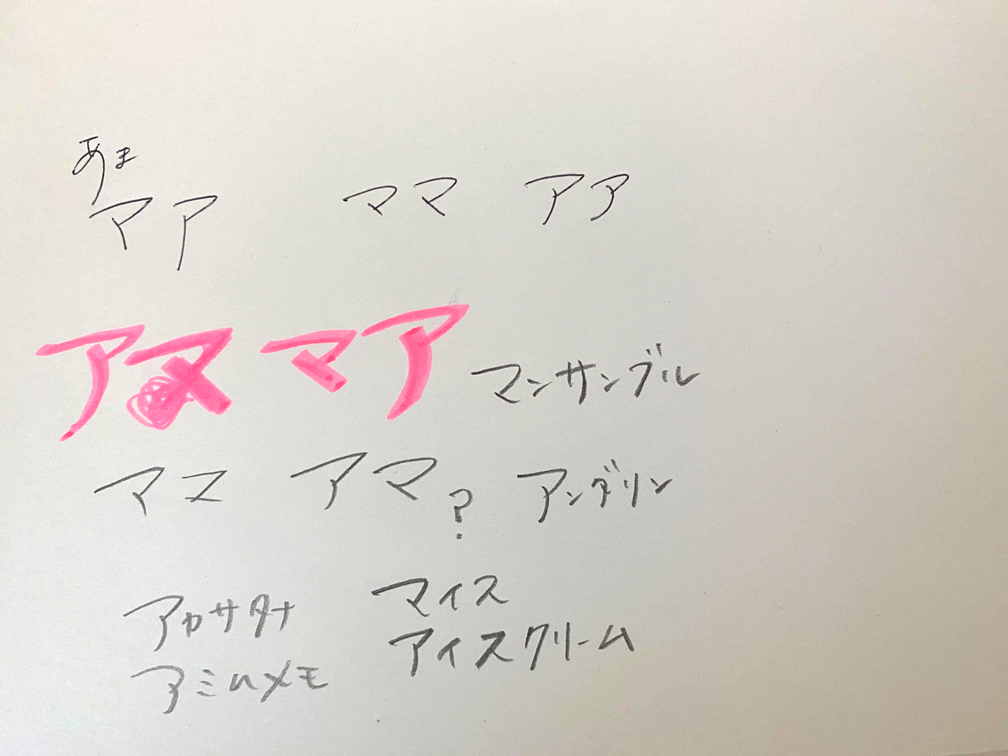 あま
マア ママ アア
アヌ マア マンサンブル
アマ? アンダリン
アカサタナ マイス
アミムメモ アイスクリーム